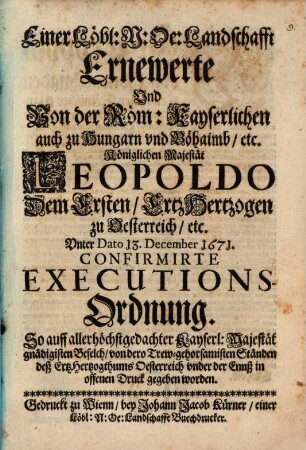 Einer Löbl: N: Oe: Landschafft
Ernewerte
Und
Von der Röm: Kayserlichen
auch zu Hungarn vnd Böhaimb / etc.
Königlichen Majestät
LEOPOLDO
Dem Ersten / ErtzHertzogen
zu Oesterreich / etc.
Vnter Dato 13. December 1671.
CONFIRMIRTE
EXECUTIONS-
Ordnung.
So auff allerhöchstgedachter Kayserl: Majestät
gnädigisten Befelch / von dero Trew-gehorsamisten Ständen
deß ErtzHertzogthumbs Oesterreich vnder der Ennß in
offenen Druck gegeben worden.
Gedruckt zu Wienn / bey Johann Jacob Kürner / einer
Löbl: N: Oe: Landschafft Buechdrucker.